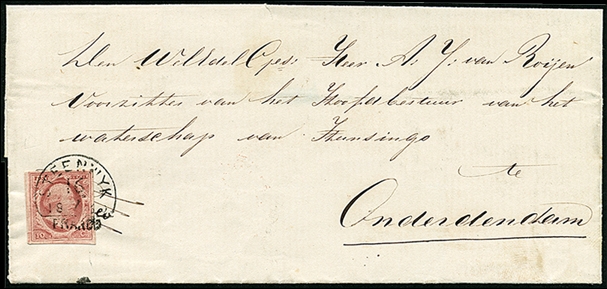 Den WelEdel Ges: Heer A: J: van Roijen
Voorzitter van het Hoofdbestuur van het
waterschap van Hunsingo
te
Onderdendam
STEENWYK
FRANCO